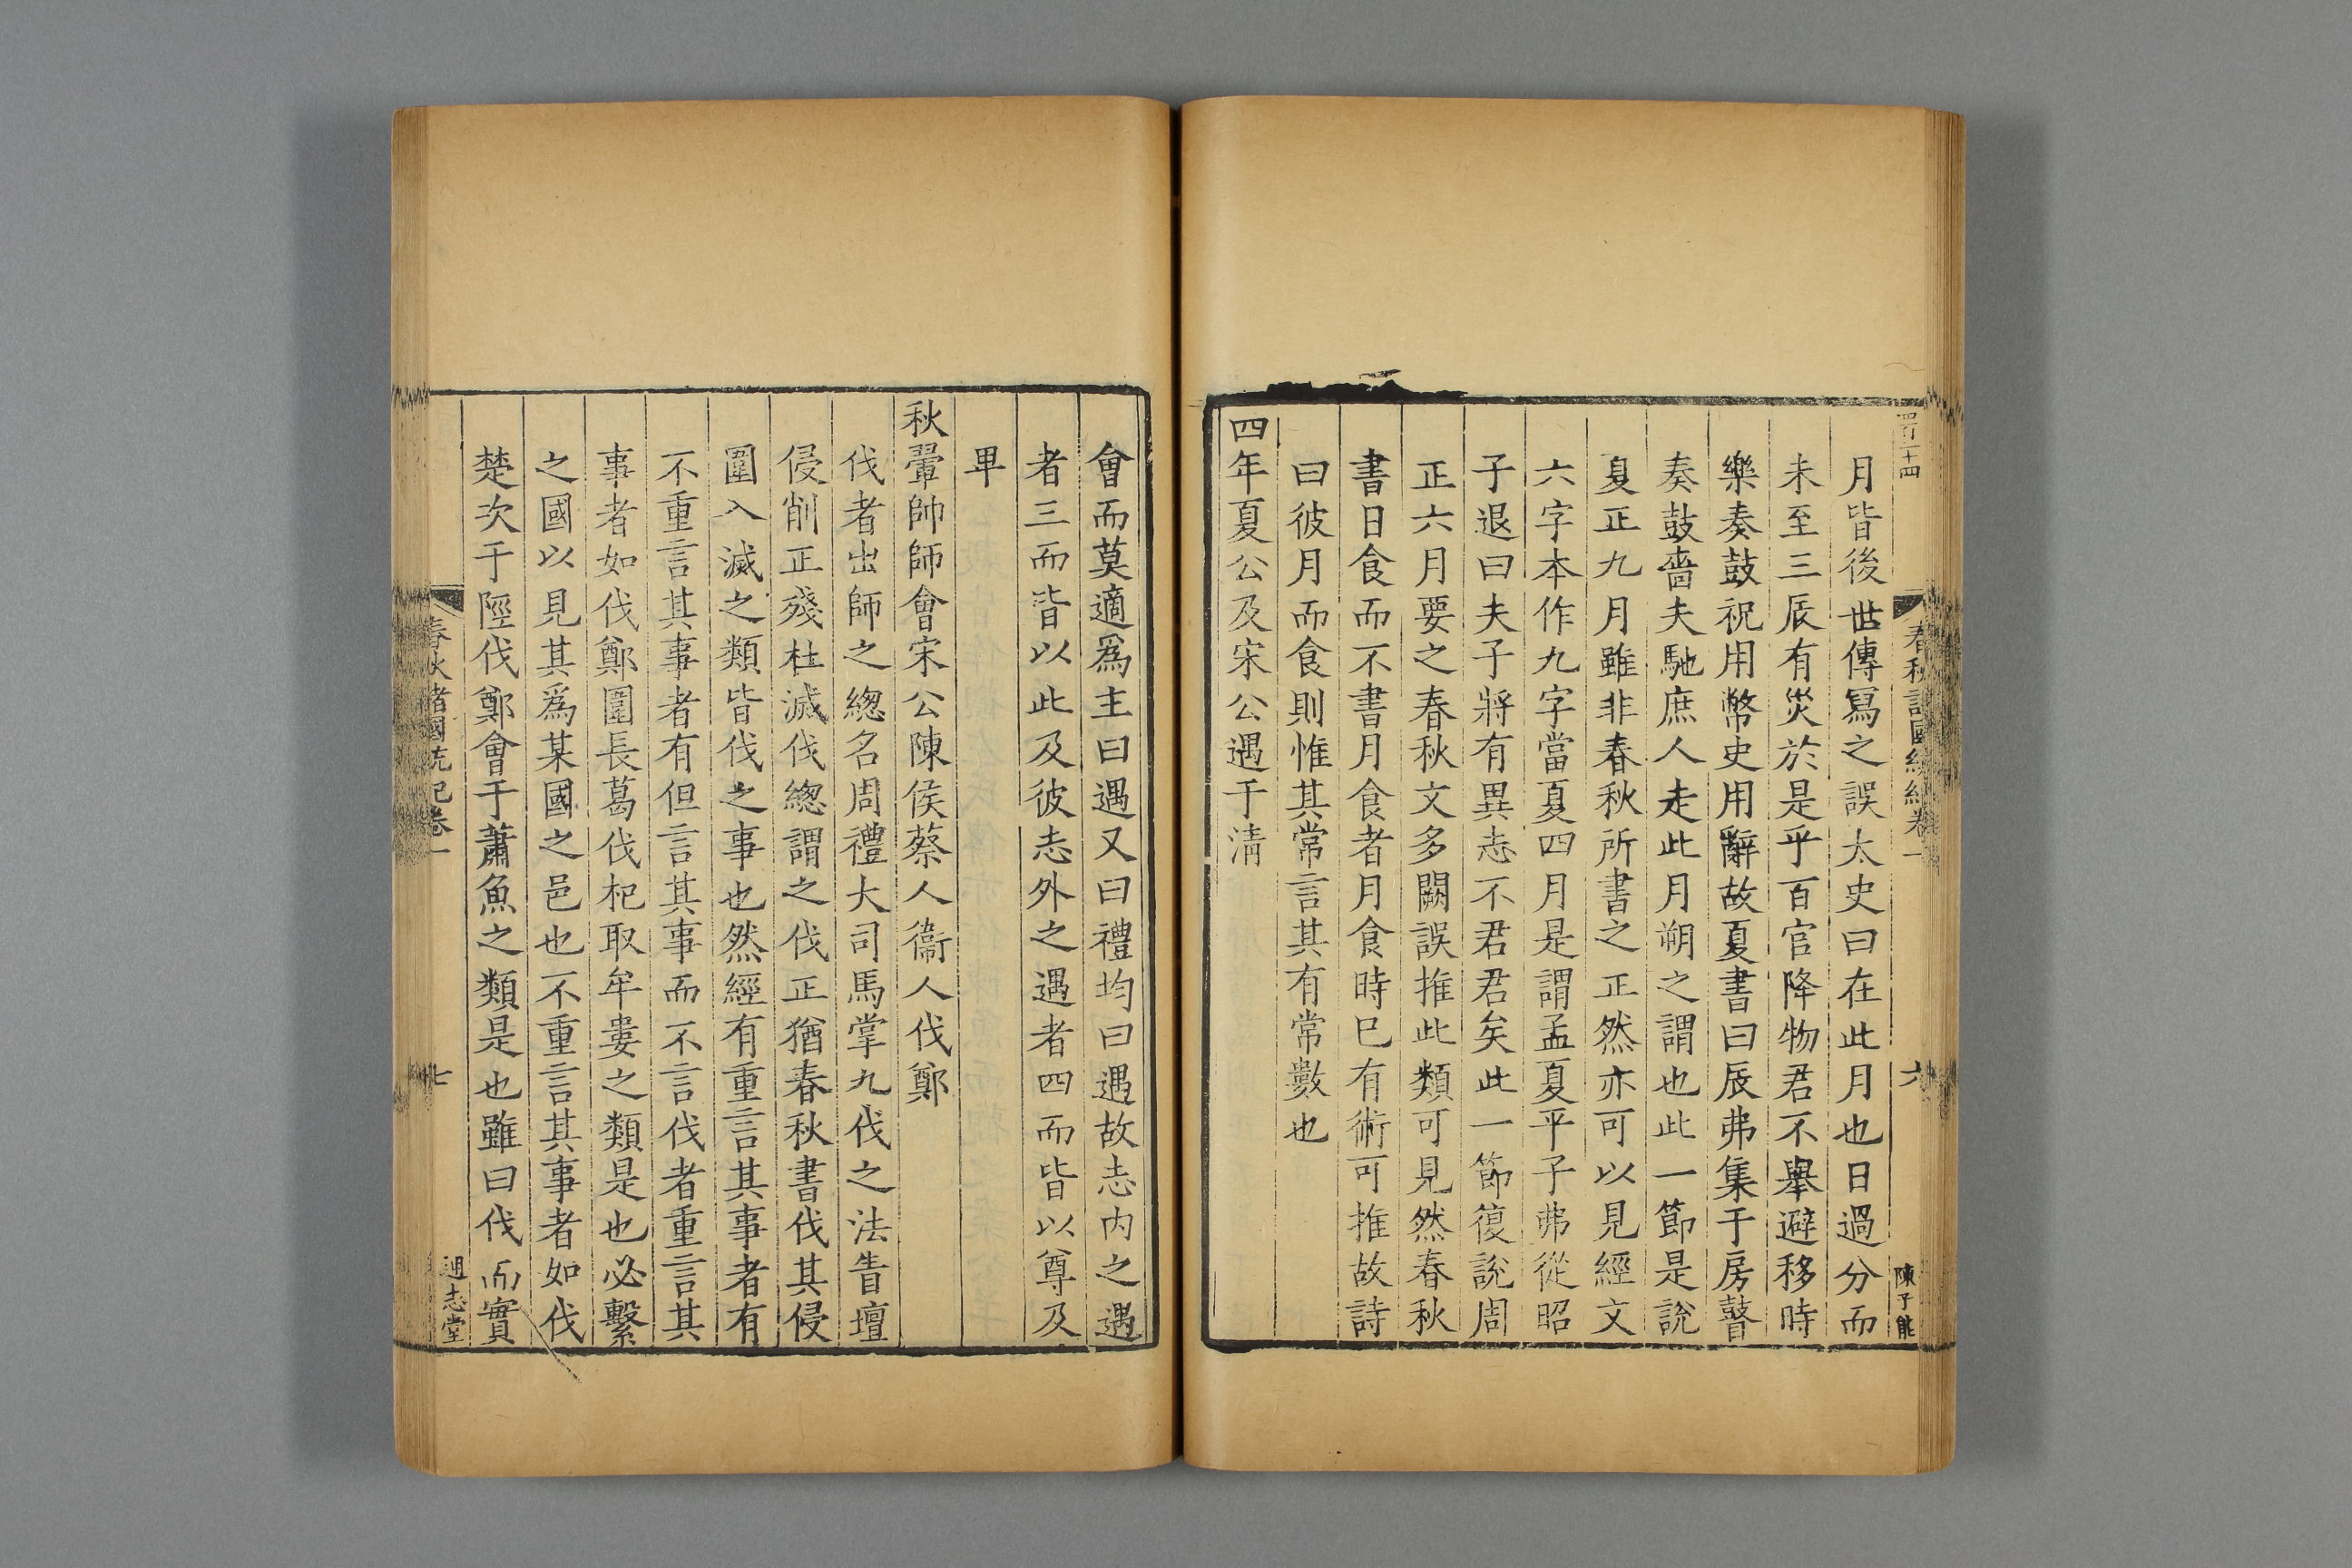 月皆後世傳寫之誤太史曰在此月也日過分而
未至三辰有災於是乎百官降物君不舉避移時
樂奏鼓祝用幣史用辭故夏書曰辰弗集于房瞽
奏鼓嗇夫馳庶人走此月朔之謂也此一節是說
夏正九月雖非春秋所書之正然亦可以見經文
六字本作九字當夏四月是謂孟夏平子弗從昭
子退曰夫子將有異志不君君矣此一節復說周
正六月要之春秋文多闕誤推此類可見然春秋
書日食而不書月食者月食時已有術可推故詩
曰彼月而食則惟其常言其有常數也
四年夏公及宋公遇于清
六
陳子能
會而莫適爲主曰遇又曰禮均曰遇故志內之遇
者三而皆以此及彼志外之遇者四而皆以尊及
卑
秋翬帥師會宋公陳侯蔡人衞人伐鄭
伐者出師之總名周禮大司馬掌九伐之法眚壇
侵削正殘杜滅伐總謂之伐正猶春秋書伐其侵
圍入滅之類皆伐之事也然經有重言其事者有
不重言其事者有但言其事而不言伐者重言其
事者如伐鄭圍長葛伐杞取牟婁之類是也必繫
之國以見其爲某國之邑也不重言其事者如伐
楚次于陘伐鄭會于蕭魚之類是也雖曰伐而實
春秋諸國統紀卷一
七
通志堂